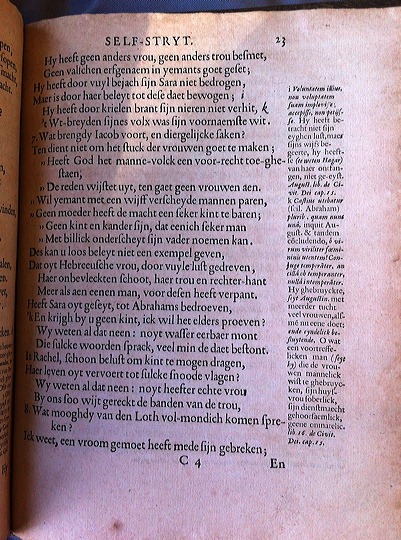 SELF-STRYT. 23
Hy heeft geen anders vrou, geen anders trou besmet,
Geen valschen erfgenaem in yemants goet geset;
Hy heeft door vuyl bejach sijn Sara niet bedrogen,
Maer is door haer beleyt tot dese daet bewogen; i
Hy heeft door krielen brant sijn nieren niet verhit, k
's Wt-breyden sijnes volx was sijn voornaemste wit.
7. Wat brengdy Iacob voort, en diergelijcke saken?
Ten dient niet om het stuck der vrouwen goet te maken;
,, Heeft God het manne-volck een voor-recht toe-ghe-
staen;
,, De reden wijstet uyt, ten gaet geen vrouwen aen.
,, Wil yemant met een wijff verscheyde mannen paren,
,, Geen moeder heeft de macht een seker kint te baren;
,, Geen kint en kander sijn, dat eenich seker man
,, Met billick onderscheyt sijn vader noemen kan.
Des kan u loos beleyt niet een exempel geven,
Dat oyt Hebreeusche vrou, door vuyle lust gedreven,
Haer onbevleckten schoot, haer trou en rechter-hant
Meer als aen eenen man, voor desen heeft verpant.
Heeft Sara oyt geseyt, tot Abrahams bedroeven,
'k En krijgh by u geen kint, ick wil het elders proeven?
Wy weten al dat neen: noyt wasser eerbaer mont
Die sulcke woorden sprack, veel min de daet bestont.
Is Rachel, schoon belust om kint te mogen dragen,
Haer leven oyt vervoert tot sulcke snoode vlagen?
Wy weten al dat neen: noyt heefter echte vrou
By ons soo wijt gereckt de banden van de trou,
8. Wat mooghdy van den Loth vol-mondich komen spre-
ken?
Ick weet, een vroom gemoet heeft mede sijn gebreken;
C 4 En
i Voluntatem illius,
non voluptatem
suam implevit;
accepisse, non petiis-
se. Hy heeft be-
tracht niet sijn
eyghen lust, maer
sijns wijfs be-
geerte, hy heeft-
se (te weten Hagar)
van haer ontfan-
gen, niet ge-eyst.
August. lib. de Ci-
vit. Dei cap. 25.
k Castius utebatur
(scil. Abraham)
pluribus. quam nunc
una, inquit Au-
gust. & tandem
cócludendo, ô vi-
rum viriliter fœmi-
nis utentem! Con-
juge temperanter, an-
cilla obtemperanter,
nulla intemperanter.
Hy ghebruyckte,
seyt Augustin. met
meerder tucht
veel vrouwen, als-
mé nu eene doet;
ende eyndelick be-
sluytende, O wat
een voortreffe-
licken man (seyt
hy) die de vrou-
wen mannelick
wist te ghebruyc-
ken, sijn huys-
vrou soberlick,
sijn dienstmaecht
gehoorsaemlick,
geene onmatelic.
lib. 16. de Civit.
Dei. cap. 25.